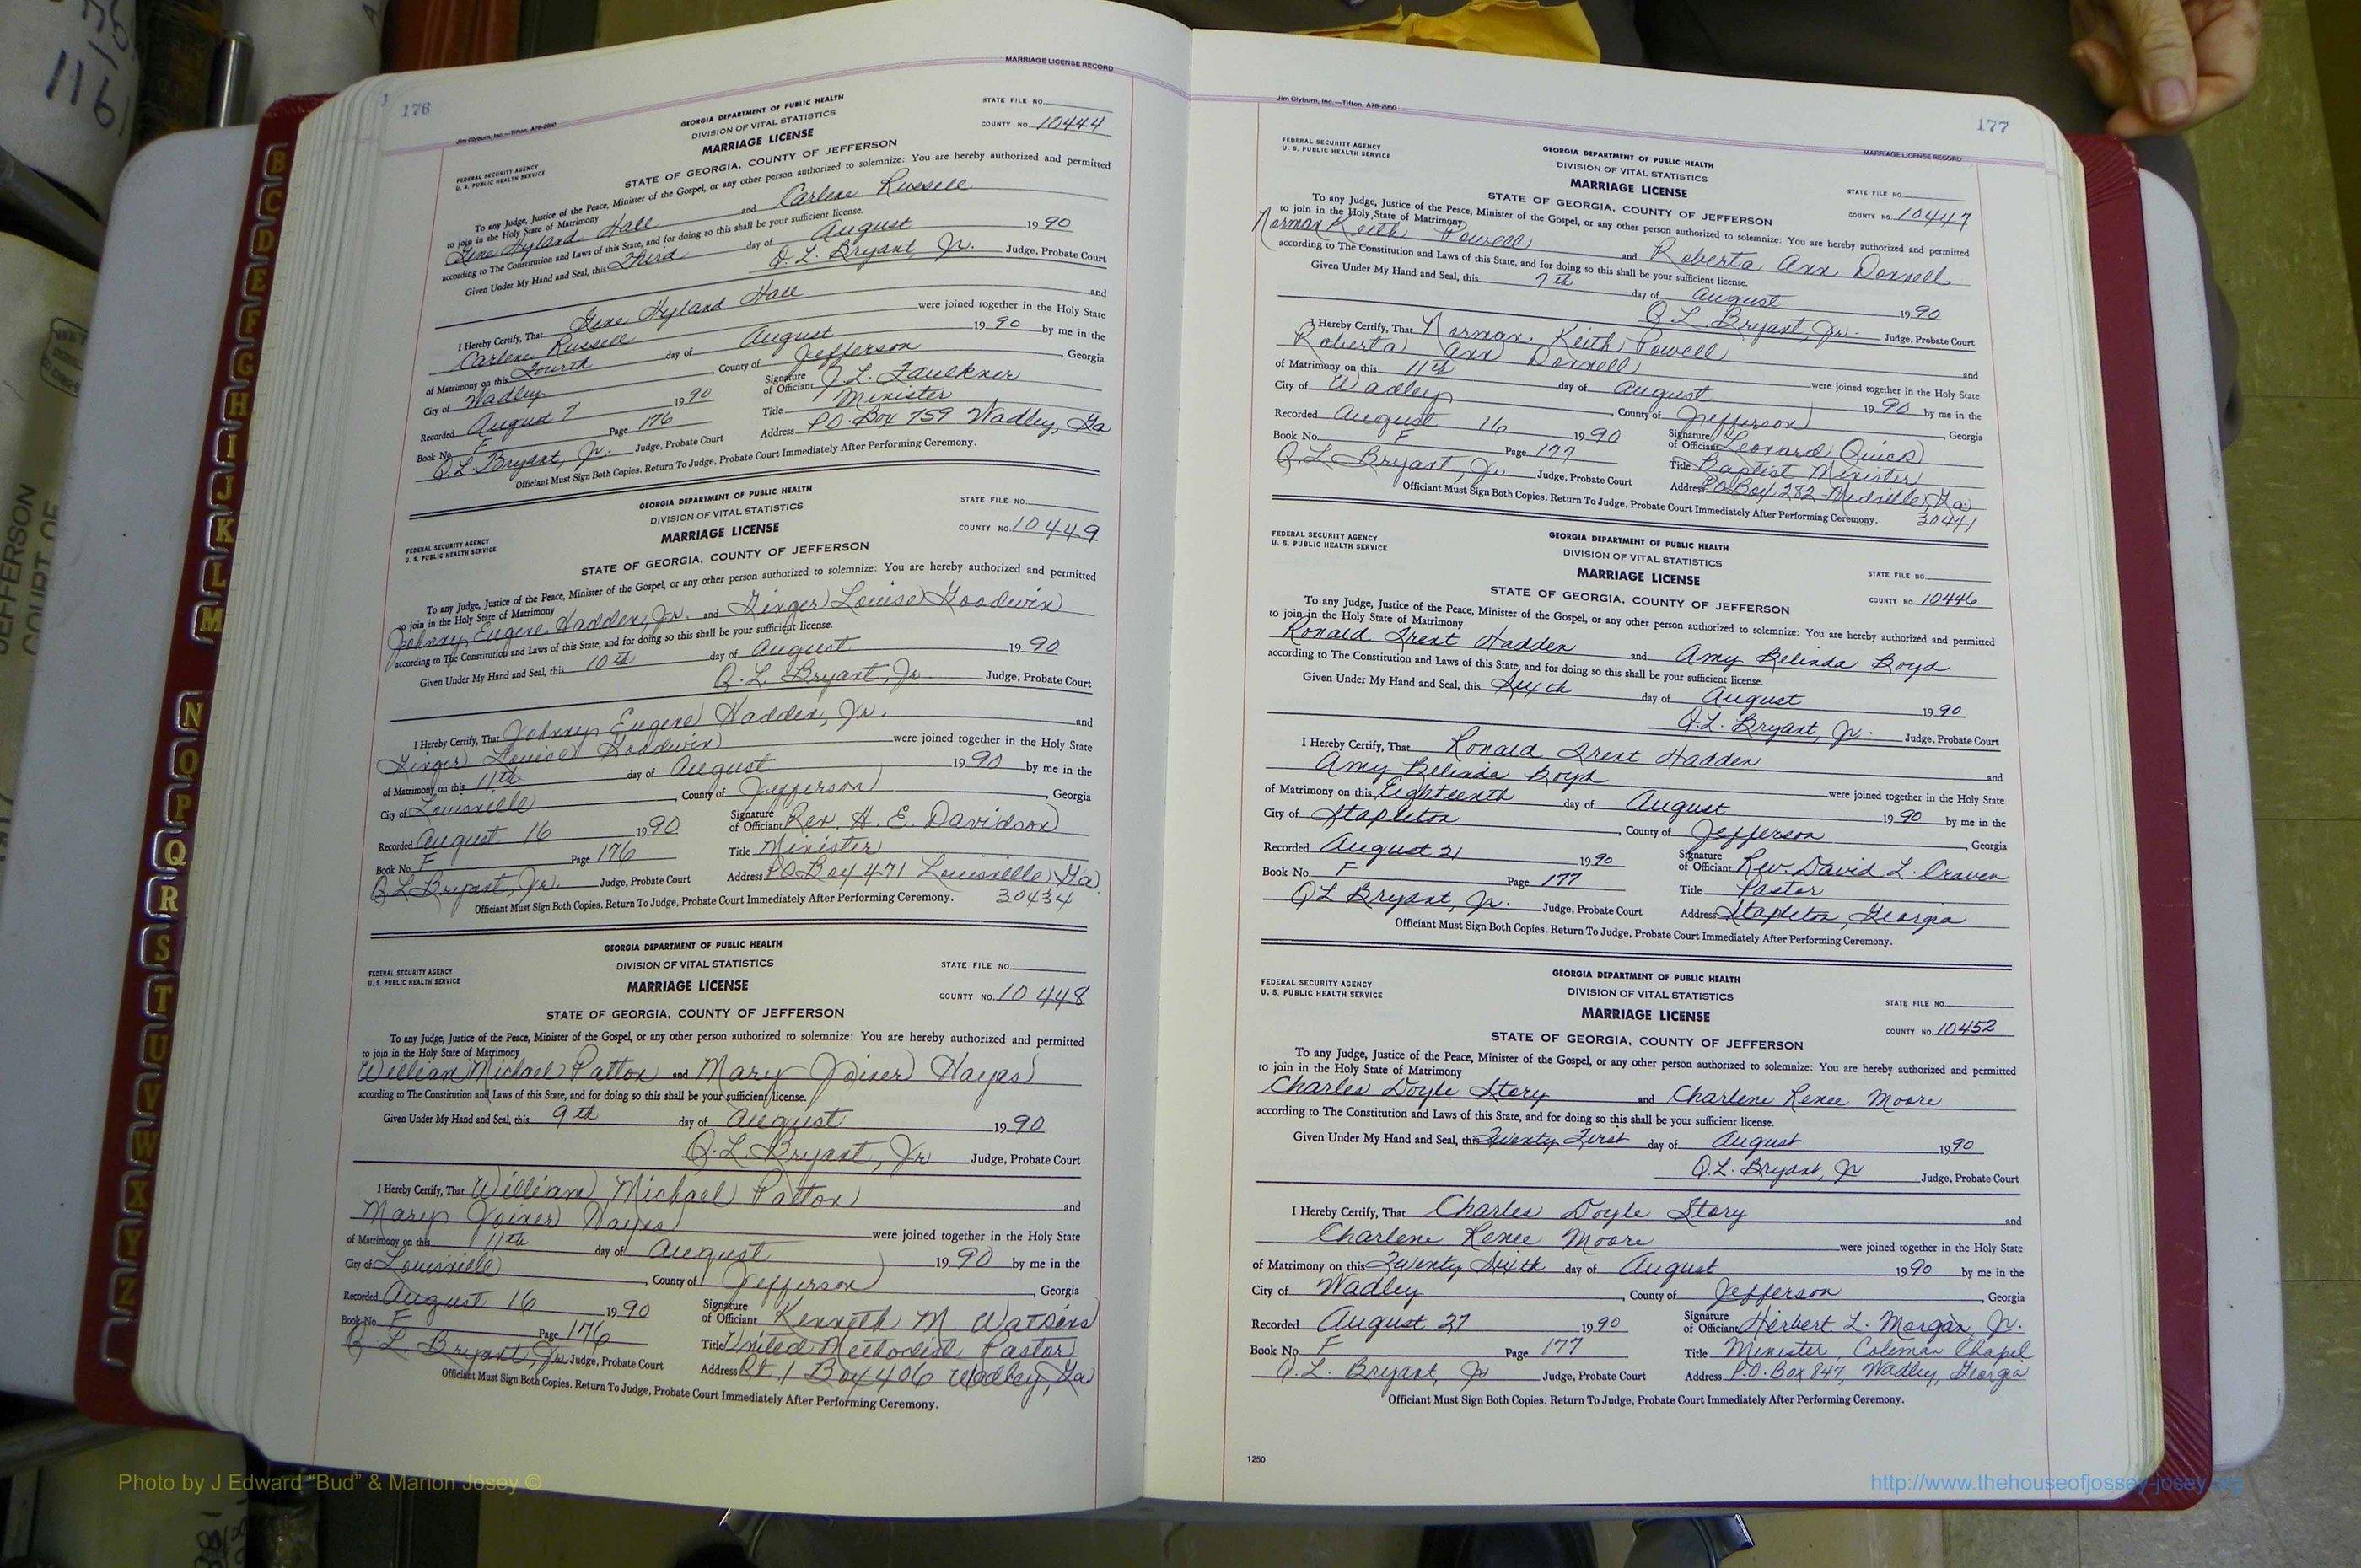 116
JEFFERSON
COURT OF
B
C
D
E
F
G
H
I
J
K
L
M
N
O
P
Q
R
S
T
U
V
W
X
Y
Z
176
MARRIAGE LICENSE RECORD
Jim Clyburn, Inc.—Tifton, A78-2950
GEORGIA DEPARTMENT OF PUBLIC HEALTH
DIVISION OF VITAL STATISTICS
MARRIAGE LICENSE
STATE FILE NO.
COUNTY NO. 10444
FEDERAL SECURITY AGENCY
U. S. PUBLIC HEALTH SERVICE
STATE OF GEORGIA, COUNTY OF JEFFERSON
To any Judge, Justice of the Peace, Minister of the Gospel, or any other person authorized to solemnize: You are hereby authorized and permitted
to join in the Holy State of Matrimony
Gene Hyland Hall and Carlene Russell
according to The Constitution and Laws of this State, and for doing so this shall be your sufficient license.
Given Under My Hand and Seal, this Third day of August 1990
Q. L. Bryant, Jr. Judge, Probate Court
I Hereby Certify, That Gene Hyland Hall and
Carlene Russell were joined together in the Holy State
of Matrimony on this Fourth day of August 1990 by me in the
City of Wadley, County of Jefferson, Georgia
Recorded August 7 1990 Signature of Officiant J. L. Faulkner
Book No. F Page 176 Title Minister
Q L Bryant, Jr. Judge, Probate Court Address P.O. Box 759 Wadley, Ga
Officiant Must Sign Both Copies. Return To Judge, Probate Court Immediately After Performing Ceremony.
GEORGIA DEPARTMENT OF PUBLIC HEALTH
DIVISION OF VITAL STATISTICS
MARRIAGE LICENSE
STATE FILE NO.
COUNTY NO. 10449
FEDERAL SECURITY AGENCY
U. S. PUBLIC HEALTH SERVICE
STATE OF GEORGIA, COUNTY OF JEFFERSON
To any Judge, Justice of the Peace, Minister of the Gospel, or any other person authorized to solemnize: You are hereby authorized and permitted
to join in the Holy State of Matrimony
Johnny Eugene Hadden, Jr. and Ginger Louise Goodwin
according to The Constitution and Laws of this State, and for doing so this shall be your sufficient license.
Given Under My Hand and Seal, this 10th day of August 1990
Q. L. Bryant, Jr. Judge, Probate Court
I Hereby Certify, That Johnny Eugene Hadden, Jr. and
Ginger Louise Goodwin were joined together in the Holy State
of Matrimony on this 11th day of August 1990 by me in the
City of Louisville, County of Jefferson, Georgia
Recorded August 16 1990 Signature of Officiant Rev. H. E. Davidson
Book No. F Page 176 Title Minister
Q L Bryant, Jr. Judge, Probate Court Address P.O Box 471 Louisville, Ga.
30434
Officiant Must Sign Both Copies. Return To Judge, Probate Court Immediately After Performing Ceremony.
GEORGIA DEPARTMENT OF PUBLIC HEALTH
DIVISION OF VITAL STATISTICS
MARRIAGE LICENSE
STATE FILE NO.
COUNTY NO. 10448
FEDERAL SECURITY AGENCY
U. S. PUBLIC HEALTH SERVICE
STATE OF GEORGIA, COUNTY OF JEFFERSON
To any Judge, Justice of the Peace, Minister of the Gospel, or any other person authorized to solemnize: You are hereby authorized and permitted
to join in the Holy State of Matrimony
William Michael Patton and Mary Joiner Hayes
according to The Constitution and Laws of this State, and for doing so this shall be your sufficient license.
Given Under My Hand and Seal, this 9th day of August 1990
Q. L. Bryant, Jr Judge, Probate Court
I Hereby Certify, That William Michael Patton and
Mary Joiner Hayes were joined together in the Holy State
of Matrimony on this 11th day of August 1990 by me in the
City of Louisville, County of Jefferson, Georgia
Recorded August 16 1990 Signature of Officiant Kenneth M. Watkins
Book No. F Page 176 Title United Methodist Pastor
Q. L. Bryant, Jr Judge, Probate Court Address Rt. 1 Box 406 Wadley, Ga
Officiant Must Sign Both Copies. Return To Judge, Probate Court Immediately After Performing Ceremony.
Jim Clyburn, Inc.—Tifton, A78-2950
177
MARRIAGE LICENSE RECORD
FEDERAL SECURITY AGENCY
U. S. PUBLIC HEALTH SERVICE
GEORGIA DEPARTMENT OF PUBLIC HEALTH
DIVISION OF VITAL STATISTICS
MARRIAGE LICENSE
STATE FILE NO.
STATE OF GEORGIA, COUNTY OF JEFFERSON
COUNTY NO. 10447
To any Judge, Justice of the Peace, Minister of the Gospel, or any other person authorized to solemnize: You are hereby authorized and permitted
to join in the Holy State of Matrimony
Norman Keith Powell and Roberta Ann Donnell
according to The Constitution and Laws of this State, and for doing so this shall be your sufficient license.
Given Under My Hand and Seal, this 7th day of August 1990
Q L Bryant, Jr. Judge, Probate Court
I Hereby Certify, That Norman Keith Powell and
Roberta Ann Donnell were joined together in the Holy State
of Matrimony on this 11th day of August 1990 by me in the
City of Wadley, County of Jefferson, Georgia
Recorded August 16 1990 Signature of Officiant Leonard Quick
Book No. F Page 177 Title Baptist Minister
Q. L Bryant, Jr Judge, Probate Court Address P.O Box 282 - Midville, Ga
30441
Officiant Must Sign Both Copies. Return To Judge, Probate Court Immediately After Performing Ceremony.
FEDERAL SECURITY AGENCY
U. S. PUBLIC HEALTH SERVICE
GEORGIA DEPARTMENT OF PUBLIC HEALTH
DIVISION OF VITAL STATISTICS
MARRIAGE LICENSE
STATE FILE NO.
STATE OF GEORGIA, COUNTY OF JEFFERSON
COUNTY NO. 10446
To any Judge, Justice of the Peace, Minister of the Gospel, or any other person authorized to solemnize: You are hereby authorized and permitted
to join in the Holy State of Matrimony
Ronald Trent Hadden and Amy Belinda Boyd
according to The Constitution and Laws of this State, and for doing so this shall be your sufficient license.
Given Under My Hand and Seal, this Sixth day of August 1990
Q.L. Bryant, Jr. Judge, Probate Court
I Hereby Certify, That Ronald Trent Hadden and
Amy Belinda Boyd were joined together in the Holy State
of Matrimony on this Eighteenth day of August 1990 by me in the
City of Stapleton, County of Jefferson, Georgia
Recorded August 21 1990 Signature of Officiant Rev. David L. Craven
Book No. F Page 177 Title Pastor
Q L Bryant, Jr. Judge, Probate Court Address Stapleton, Georgia
Officiant Must Sign Both Copies. Return To Judge, Probate Court Immediately After Performing Ceremony.
FEDERAL SECURITY AGENCY
U. S. PUBLIC HEALTH SERVICE
GEORGIA DEPARTMENT OF PUBLIC HEALTH
DIVISION OF VITAL STATISTICS
MARRIAGE LICENSE
STATE FILE NO.
STATE OF GEORGIA, COUNTY OF JEFFERSON
COUNTY NO. 10452
To any Judge, Justice of the Peace, Minister of the Gospel, or any other person authorized to solemnize: You are hereby authorized and permitted
to join in the Holy State of Matrimony
Charles Doyle Story and Charlene Renee Moore
according to The Constitution and Laws of this State, and for doing so this shall be your sufficient license.
Given Under My Hand and Seal, this Twenty First day of August 1990
Q.L. Bryant, Jr Judge, Probate Court
I Hereby Certify, That Charles Doyle Story and
Charlene Renee Moore were joined together in the Holy State
of Matrimony on this Twenty Sixth day of August 1990 by me in the
City of Wadley, County of Jefferson, Georgia
Recorded August 27 1990 Signature of Officiant Herbert L. Morgan Jr.
Book No. F Page 177 Title Minister, Coleman Chapel
Q.L. Bryant, Jr Judge, Probate Court Address P.O. Box 847, Wadley, Georgia
Officiant Must Sign Both Copies. Return To Judge, Probate Court Immediately After Performing Ceremony.
1250
Photo by J Edward "Bud" & Marion Josey ©
http://www.thehouseofjossey-josey.org